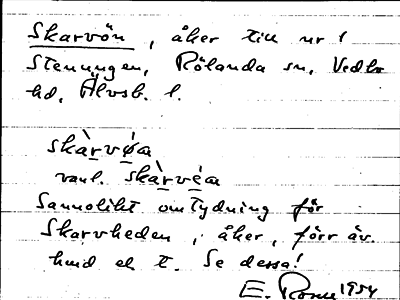 Skarvön, åker till nr 1
Stenungen, Rölanda sn, Vedbo
hd, Älvsb. l.
skàrvø̀a
vanl. skàrvéa
Sannolikt omtydning för
Skarvheden, åker, förr äv.
hmd el t. Se dessa!
E. 1954